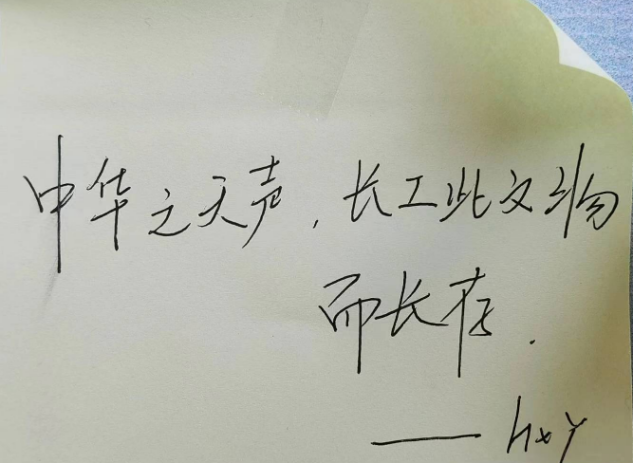 中华之天声,长工此文物
而长存.
——hxy